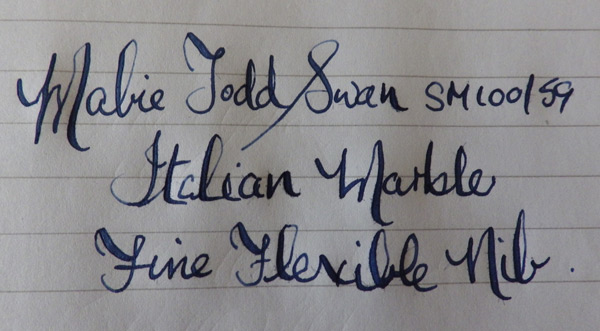 Mabie Todd Swan SM100/59
Italian Marble
Fine Flexible Nib.